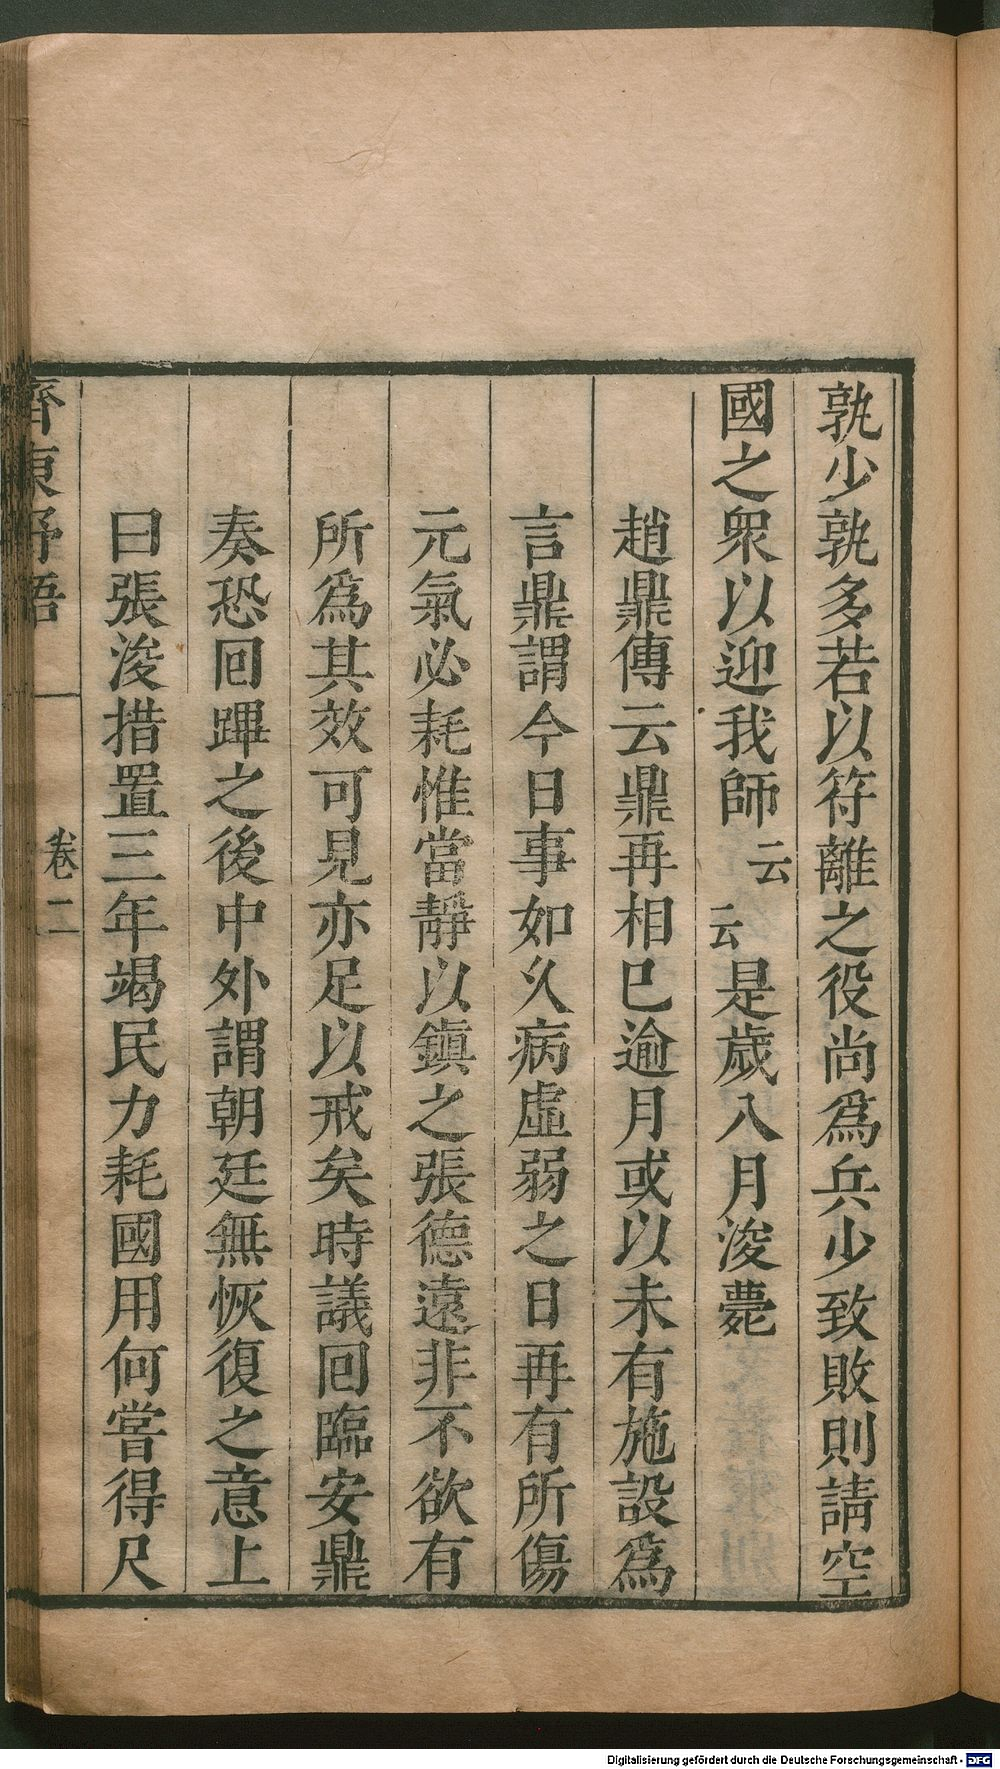 孰少孰多若以符離之役尚爲兵少致敗則請空
國之衆以迎我師云云是歲八月浚薨
趙鼎傳云鼎再相已逾月或以未有施設爲
言鼎謂今日事如乆病虛弱之日再有所傷
元氣必耗惟當靜以鎮之張德遠非不欲有
所爲其效可見亦足以戒矣時議回臨安鼎
奏恐回蹕之後中外謂朝廷無恢復之意上
曰張浚措置三年竭民力耗國用何嘗得尺
齊東野語
卷二
Digitalisierung gefördert durch die Deutsche Forschungsgemeinschaft - DFG